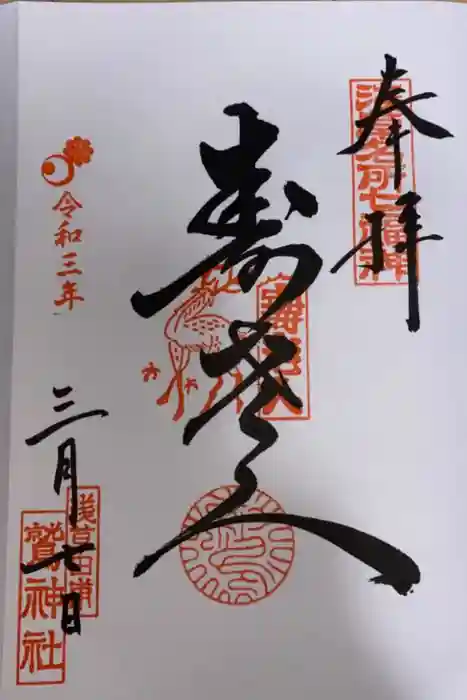 奉拝
浅草名所七福神
寿老人
壽老人
令和三年
三月七日
浅草田甫
鷲神社